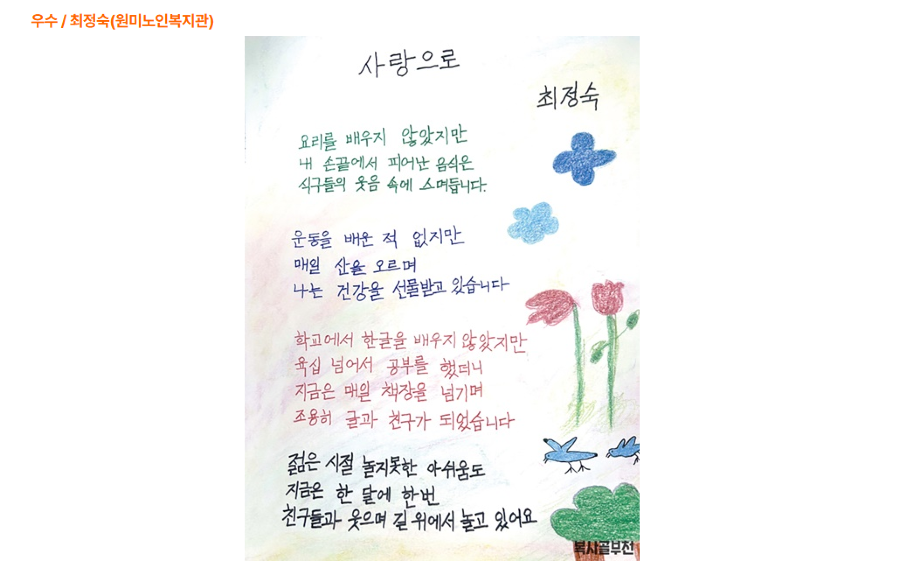 우수 / 최정숙(원미노인복지관)
사랑으로
최정숙
요리를 배우지 않았지만
내 손끝에서 피어난 음식은
식구들의 웃음 속에 스며듭니다.
운동을 배운 적 없지만
매일 산을 오르며
나는 건강을 선물받고 있습니다
학교에서 한글을 배우지 않았지만
육십 넘어서 공부를 했더니
지금은 매일 책장을 넘기며
조용히 글과 친구가 되었습니다
젊은 시절 놀지못한 아쉬움도
지금은 한 달에 한번
친구들과 웃으며 길 위에서 놀고 있어요
복사골부천